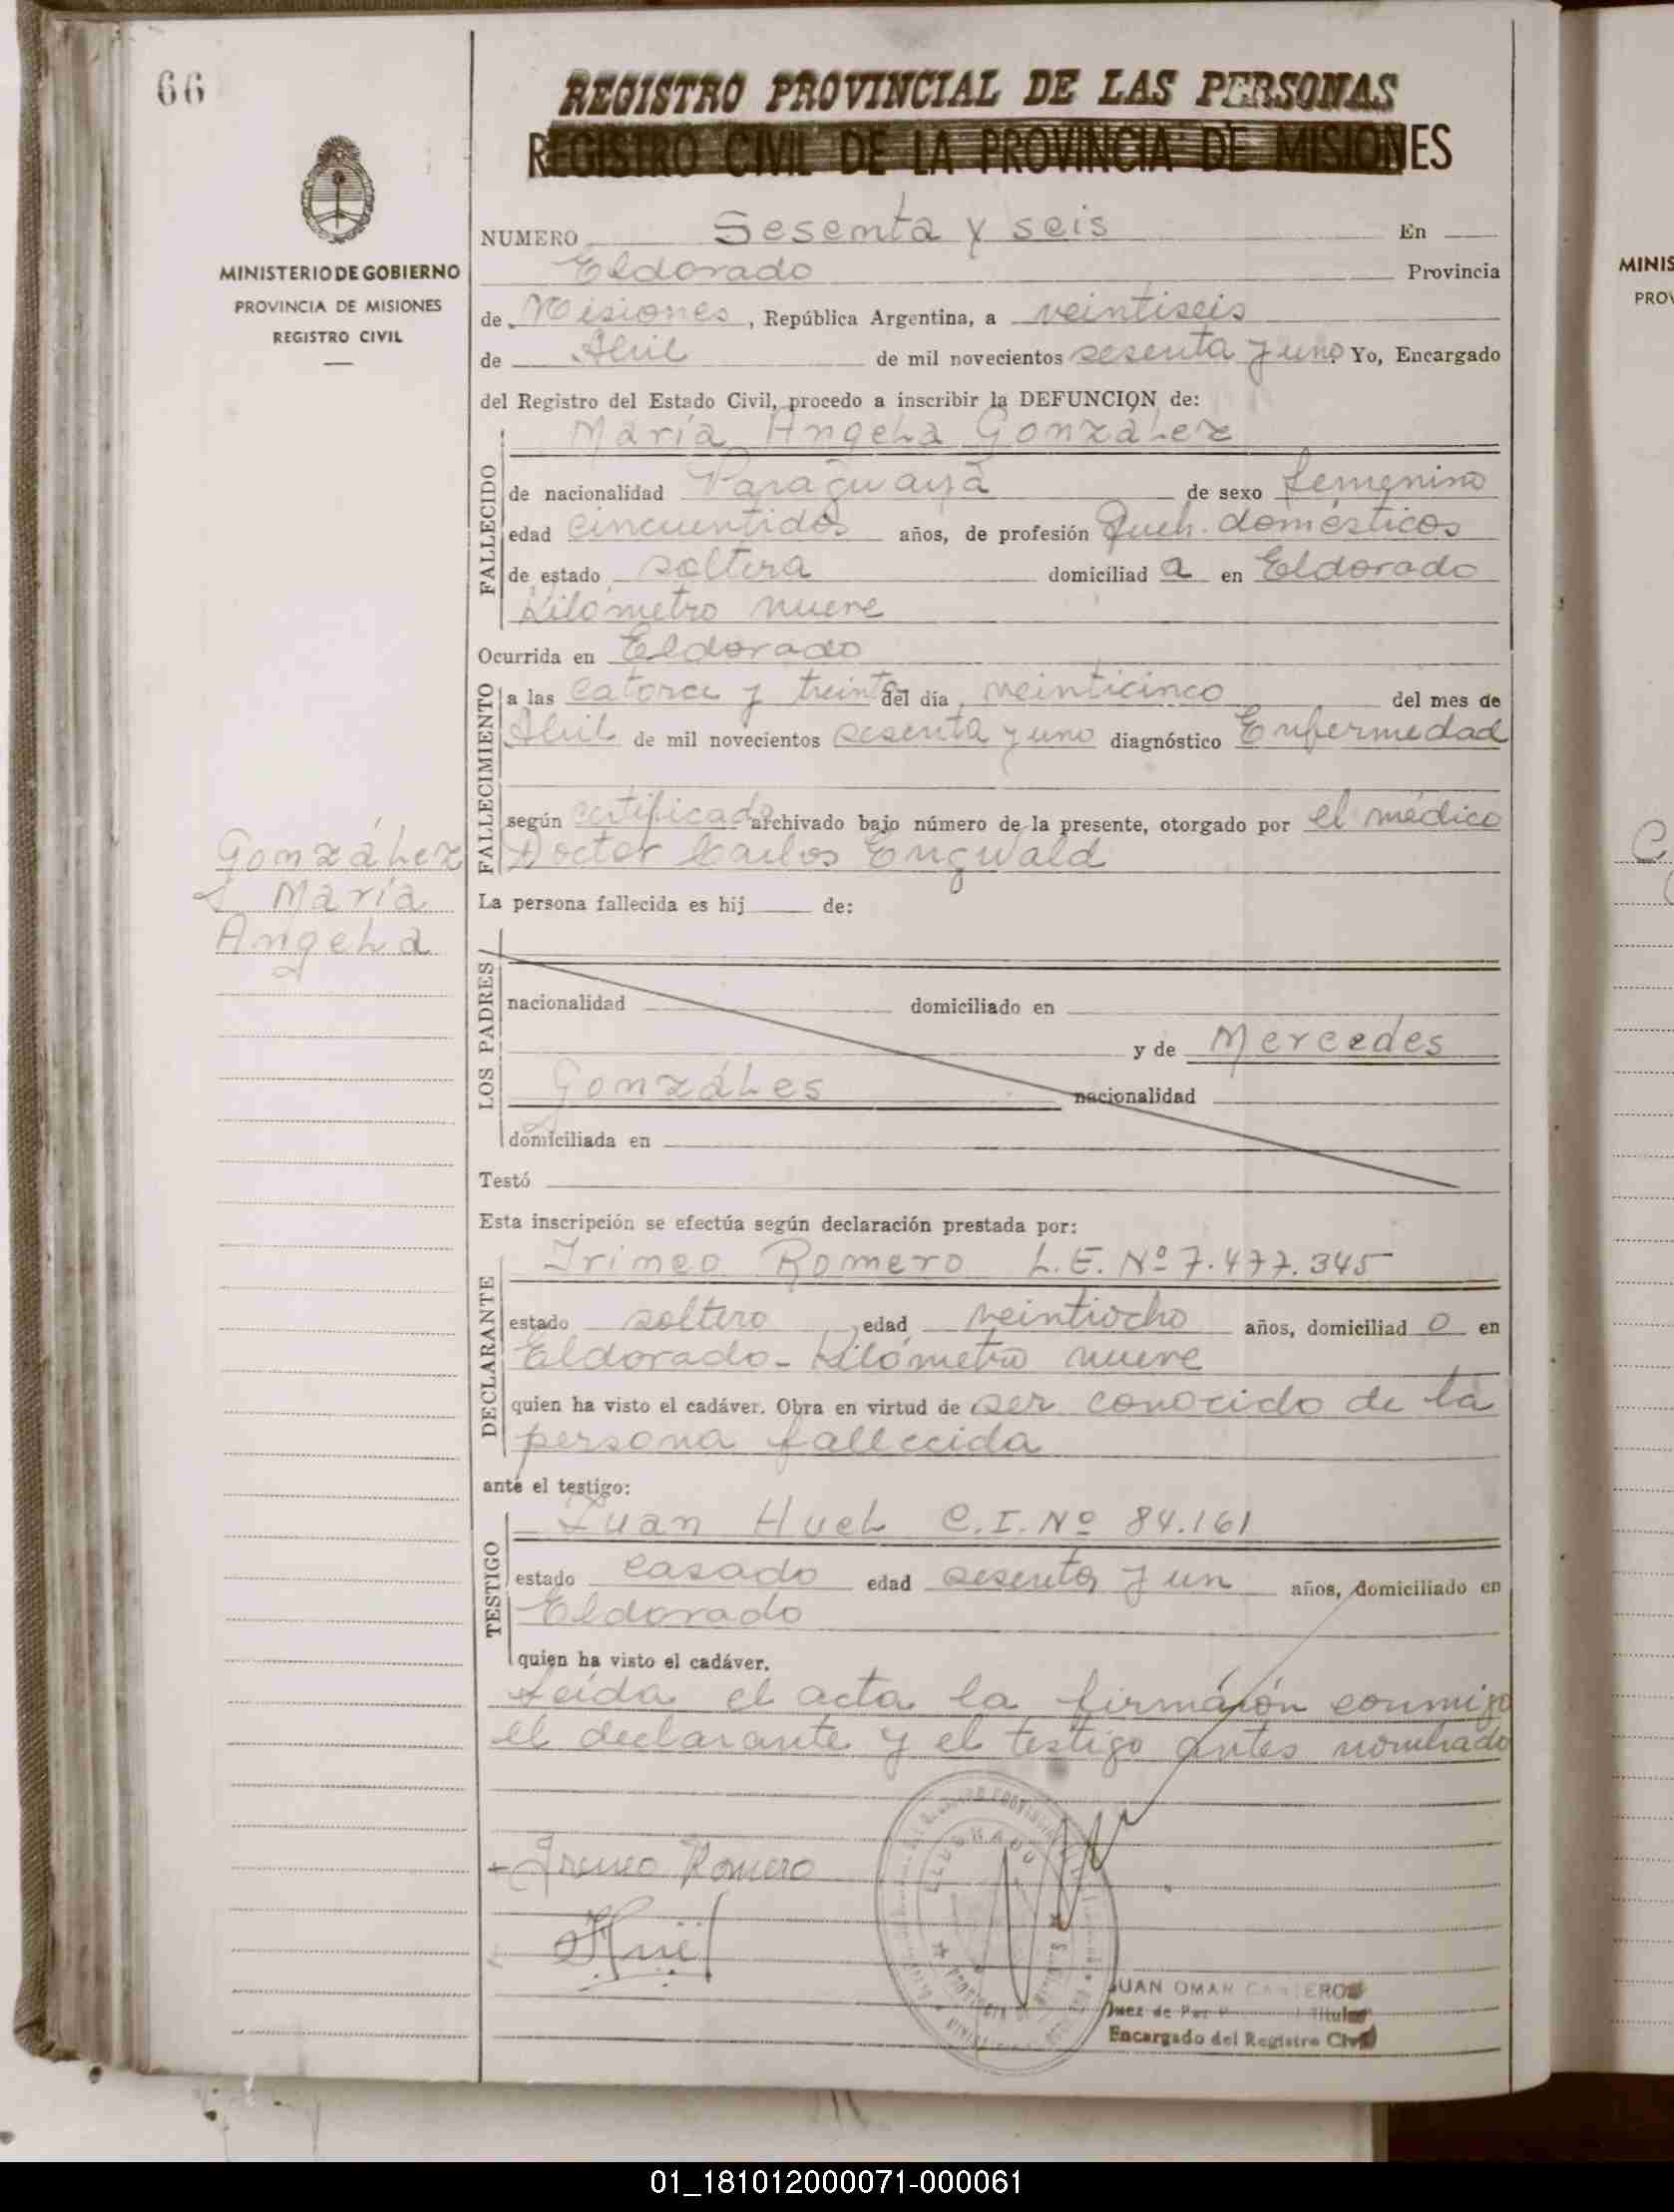 66
REGISTRO PROVINCIAL DE LAS PERSONAS
REGISTRO CIVIL DE LA PROVINCIA DE MISIONES
MINISTERIO DE GOBIERNO
PROVINCIA DE MISIONES
REGISTRO CIVIL
NUMERO Sesenta y seis En
Eldorado Provincia
de Misiones, República Argentina, a veintiseis
de Abril de mil novecientos sesenta y uno Yo, Encargado
del Registro del Estado Civil, procedo a inscribir la DEFUNCION de:
FALLECIDO
María Angela González
de nacionalidad Paraguaya de sexo femenino
edad cincuentidos años, de profesión Queh. domésticos
de estado soltera domiciliad a en Eldorado
Kilómetro nueve
Ocurrida en Eldorado
FALLECIMIENTO
a las catorce y treinta del dia veinticinco del mes de
Abril de mil novecientos sesenta y uno diagnóstico Enfermedad
según certificado archivado bajo número de la presente, otorgado por el médico
Doctor Carlos Engwald
González
María
Angela
La persona fallecida es hij de:
LOS PADRES
nacionalidad domiciliado en
y de Mercedes
Gonzáles nacionalidad
domiciliada en
Testó
Esta inscripción se efectúa según declaración prestada por:
DECLARANTE
Irineo Romero L.E. Nº 7.477.345
estado soltero edad veintiocho años, domiciliad o en
Eldorado - Kilómetro nueve
quien ha visto el cadáver. Obra en virtud de ser conocido de la
persona fallecida
ante el testigo:
TESTIGO
Juan Huel C.I. Nº 84.161
estado casado edad sesenta y un años, domiciliado en
Eldorado
quien ha visto el cadáver.
Leída el acta la firmarón conmigo
el declarante y el testigo antes nombrado
Irineo Romero
Hüel
ELDORADO
JUAN OMAR
Juez de Paz Titular
Encargado del Registro Civil
MINIS
PROV
01_181012000071-000061